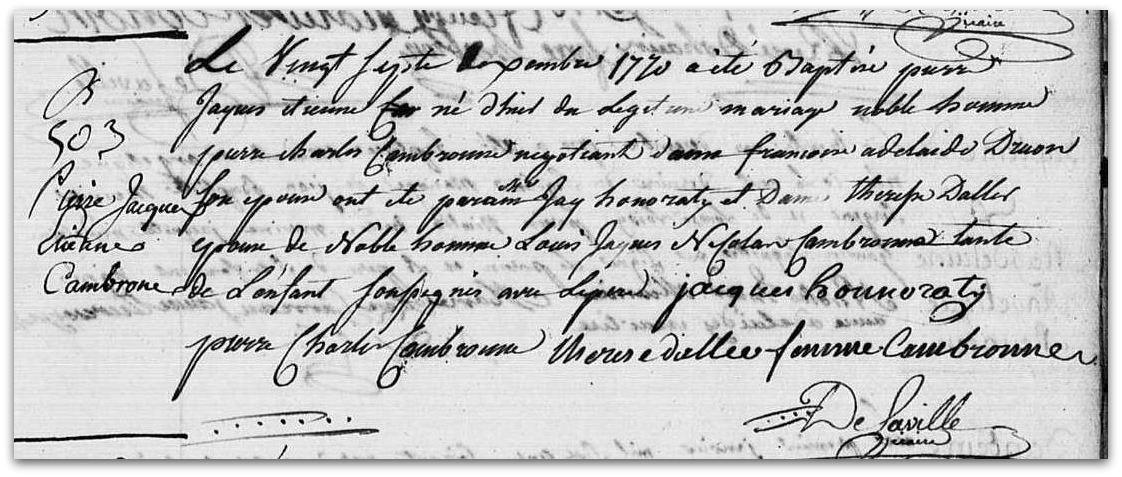 B
503
Pierre Jacque
Etienne
Cambrone
Le Vingt Septe Decembre 1770 a été Baptisé pierre
Jaques etienne né d'hier du legitime mariage noble homme
pierre charles Cambronne negotiant dame francoise adelaide Druon
son epouse ont ete parain Mr Jaq honoraty et Dame therese Dallee
epouse de Noble homme Louis Jaques Nicolas Cambronne tante
de L'enfant soussignés avec Le pere jacques honnoraty
pierre Charles Cambronne therese dallee femme Cambronne
De Laville
Vicaire